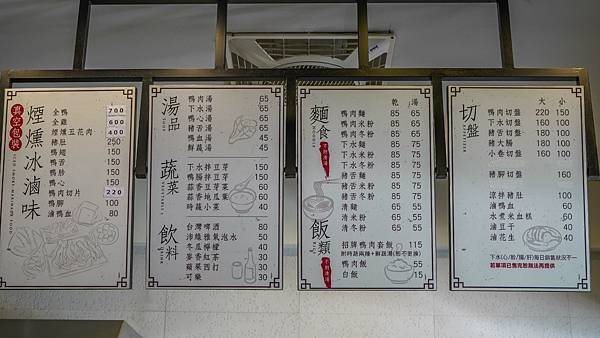 真空包裝
煙燻冰滷味
全鴨 700
全雞 600
煙燻五花肉 400
豬肚 250
鴨翅 150
鴨舌 150
鴨胗 150
鴨心 150
鴨肉切片 220
鴨腳 100
滷鴨血 80
湯品
SOUP
鴨肉湯 65
下水湯 65
豬肚湯 65
豬舌湯 65
鴨血湯 45
鮮蔬湯 45
蔬菜
VEGETABLES
下水拌豆芽 150
鴨腸拌豆芽 150
蒜香豆芽菜 60
蒜香地瓜葉 60
時蔬小菜 40
飲料
台灣啤酒 80
沛綠雅氣泡水 50
冬瓜檸檬 40
麥香紅茶 30
蘋果西打 30
可樂 30
麵食
NOODLE
乾 湯
鴨肉麵 85 75
鴨肉米粉 85 75
鴨肉冬粉 85 75
下水麵 85 75
下水米粉 85 75
下水冬粉 85 75
豬舌麵 85 75
豬舌米粉 85 75
豬舌冬粉 85 75
清麵 65 55
清米粉 65 55
清冬粉 65 55
飯類
招牌鴨肉套飯 115
附時蔬兩樣+鮮蔬湯(恕不更換)
鴨肉飯 55
白飯 15
切盤
大 小
鴨肉切盤 220 150
下水切盤 160 100
豬舌切盤 160 100
豬大腸 160 100
小卷切盤 160 100
豬腳切盤 160
涼拌豬肚 100
滷鴨血 60
水煮米血糕 60
滷豆干 40
滷花生 40
下水(心/胗/腸/肝)每日銷售狀況不一
若單項已售完恕無法再提供